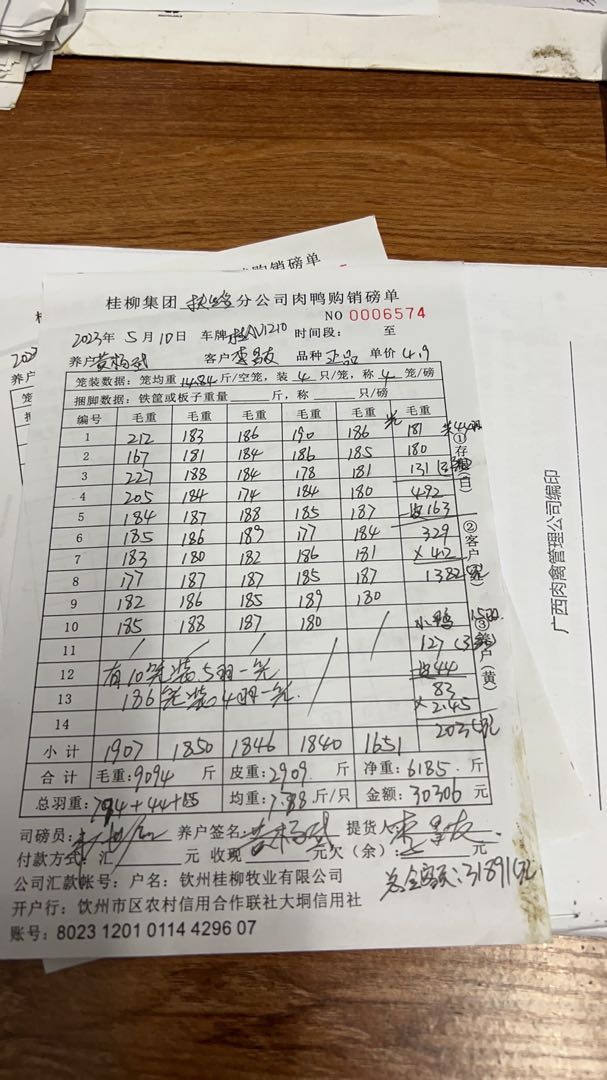 购销磅单
桂柳集团 分公司肉鸭购销磅单
NO 0006574
2023年 5月10日 车牌 时间段: 至
养户 客户 品种 正品 单价 4.9
笼装数据:笼均重 14.84 斤/空笼,装 4 只/笼,称 4 笼/磅
捆脚数据:铁筐或板子重量 斤,称 只/磅
编号 毛重 毛重 毛重 毛重 毛重 毛重
1 212 183 186 190 186 181
2 167 181 184 186 185 180
3 227 188 184 178 181 131
4 205 184 174 184 180 492
5 184 187 188 185 187 皮163
6 185 186 189 177 184 329
7 183 180 182 186 181
8 177 187 187 185 187 1382
9 182 186 185 189 180
10 185 188 187 180 小鸭
11 / / / / / 127
12 有10笼装5羽一笼 皮44
13 186笼装4羽一笼 83
×2.45
14 203
小计 1907 1850 1846 1840 1651
合计 毛重:9094 斤 皮重:2909 斤 净重:6185 斤
总羽重: +44+ 均重:7.88 斤/只 金额:30306 元
①存根(白)
②客户(红)
③养户(黄)
司磅员: 养户签名: 提货人:
付款方式:汇 元 收现 元欠(余): 元
公司汇款帐号:户名:钦州桂柳牧业有限公司
总金额:31891元
开户行:钦州市区农村信用合作联社大垌信用社
账号:8023 1201 0114 4296 07
广西肉禽管理公司编印